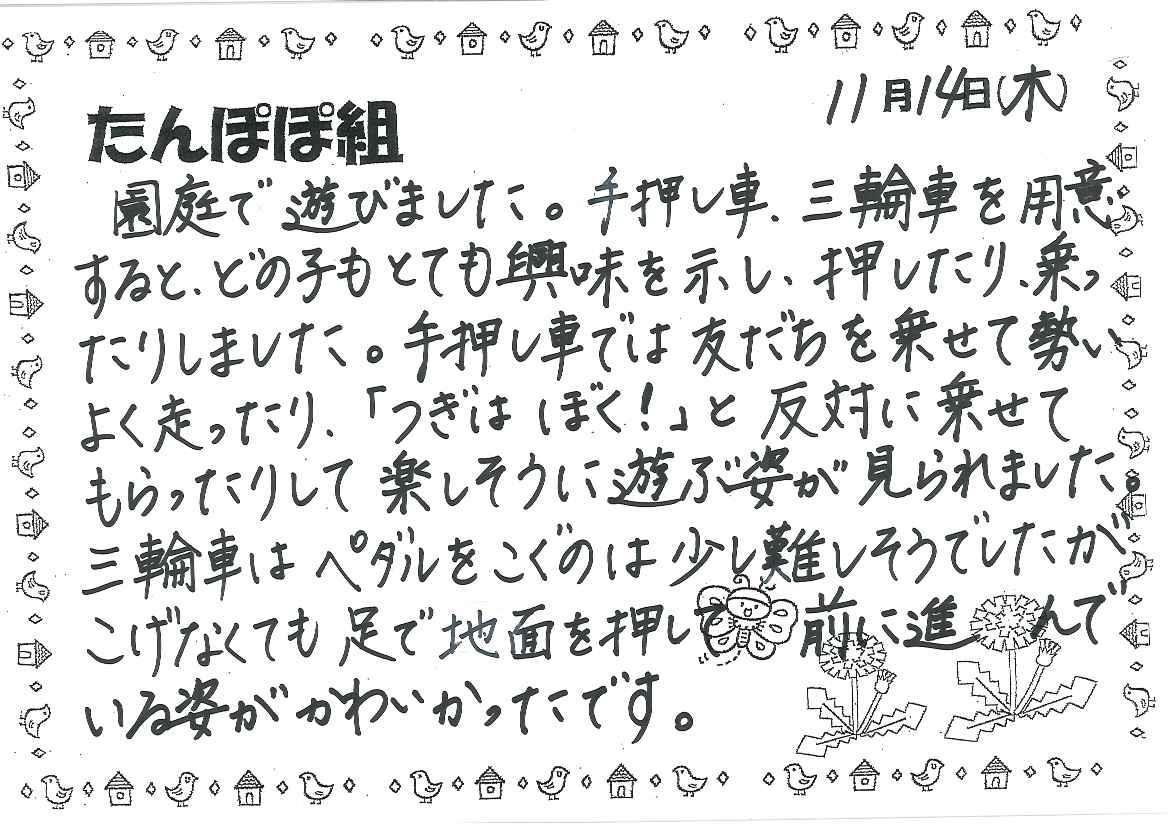 11月14日(木)
たんぽぽ組
園庭で遊びました。手押し車、三輪車を用意
すると、どの子もとても興味を示し、押したり、乗っ
たりしました。手押し車では友だちを乗せて勢い
よく走ったり、「つぎは ぼく!」と反対に乗せて
もらったりして楽しそうに遊ぶ姿が見られました。
三輪車はペダルをこぐのは少し難しそうでしたが
こげなくても足で地面を押して前に進んで
いる姿がかわいかったです。